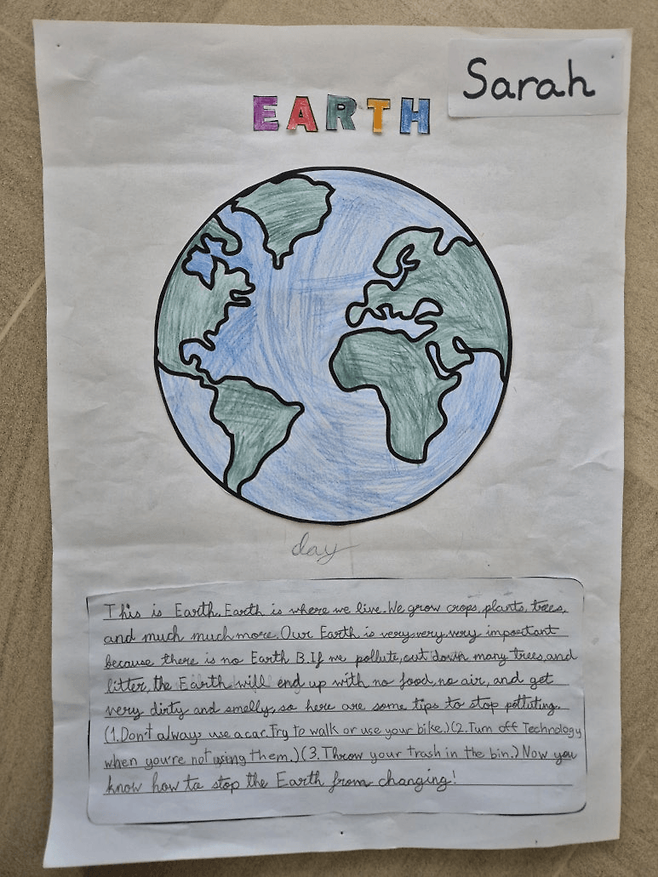 Sarah
EARTH
day
This is Earth. Earth is where we live. We grow crops, plants, trees,
and much much more. Our Earth is very, very, very important
because there is no Earth B. If we pollute, cut down many trees, and
litter, the Earth will end up with no food, no air, and get
very dirty and smelly, so here are some tips to stop polluting.
(1. Don't always use a car. Try to walk or use your bike.) (2. Turn off Technology
when you're not using them.) (3. Throw your trash in the bin.) Now you
know how to stop the Earth from changing!